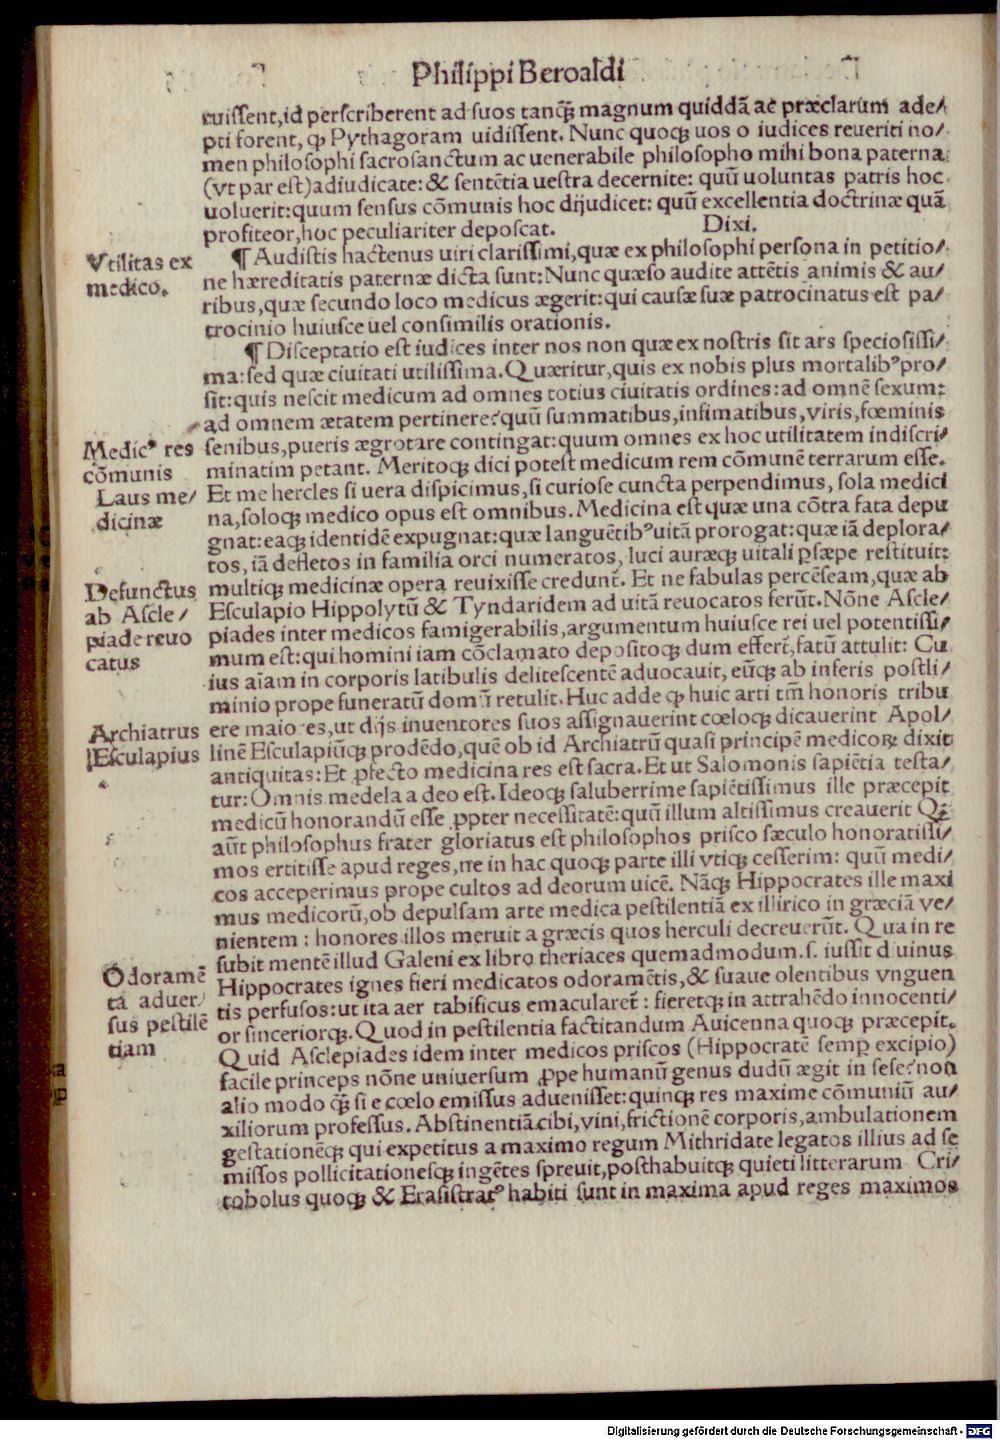 Philippi Beroaldi
cuissent,id perscriberent ad suos tanq̃ magnum quiddã ac præclarum ade/
pti forent, ꝙ Pythagoram uidissent. Nunc quoqꝫ uos o iudices reueriti no/
men philosophi sacrosanctum ac uenerabile philosopho mihi bona paterna
(vt par est)adiudicate: & sentẽtia uestra decernite: quũ uoluntas patris hoc
uoluerit:quum sensus cõmunis hoc dijudicet: quũ excellentia doctrinæ quã
profiteor,hoc peculiariter deposcat. Dixi.
Vtilitas ex
medico.
¶ Audistis hactenus uiri clarissimi,quæ ex philosophi persona in petitio/
ne hæreditatis paternæ dicta sunt:Nunc quæso audite attẽtis animis & au/
ribus,quæ secundo loco medicus ægerit:qui causæ suæ patrocinatus est pa/
trocinio huiusce uel consimilis orationis.
¶ Disceptatio est iudices inter nos non quæ ex nostris sit ars speciosissi/
ma:sed quæ ciuitati utilissima.Quæritur,quis ex nobis plus mortalibꝰ pro/
sit:quis nescit medicum ad omnes totius ciuitatis ordines:ad omnẽ sexum:
ad omnem ætatem pertinere?quũ summatibus,infimatibus,viris,fœminis
Medicꝰ res
cõmunis
senibus,pueris ægrotare contingat:quum omnes ex hoc utilitatem indiscri/
minatim petant. Meritoqꝫ dici potest medicum rem cõmunẽ terrarum esse.
Laus me/
dicinæ
Et me hercles si uera dispicimus,si curiose cuncta perpendimus, sola medici
na,soloqꝫ medico opus est omnibus.Medicina est quæ una cõtra fata depu
gnat:eaqꝫ identidẽ expugnat:quæ languẽtibꝰ uitã prorogat:quæ iã deplora/
tos, iã defletos in familia orci numeratos, luci auræqꝫ uitali ꝑsæpe restituit:
Defunctus
ab Ascle/
piade reuo
catus
multiqꝫ medicinæ opera reuixisse credunt̃. Et ne fabulas percẽseam,quæ ab
Esculapio Hippolytũ & Tyndaridem ad uitã reuocatos ferũt.Nõne Ascle/
piades inter medicos famigerabilis,argumentum huiusce rei uel potentissi/
mum est:qui homini iam cõclamato depositoqꝫ dum effert̃,fatũ attulit: Cu
ius aĩam in corporis latibulis delitescentẽ aduocauit, eũqꝫ ab inferis postli/
minio prope funeratũ domũ retulit.Huc adde ꝙ huic arti tm̃ honoris tribu
Archiatrus
Esculapius
ere maiores,ut dijs inuentores suos assignauerint cœloqꝫ dicauerint Apol/
linẽ Esculapiũqꝫ prodẽdo,quẽ ob id Archiatrũ quasi principẽ medicoꝝ dixit
antiquitas:Et ꝓfecto medicina res est sacra.Et ut Salomonis sapiẽtia testa/
tur:Omnis medela a deo est.Ideoqꝫ saluberrime sapiẽtissimus ille præcepit
medicũ honorandũ esse ꝓpter necessitatẽ:quũ illum altissimus creauerit Qꝫ
aũt philosophus frater gloriatus est philosophos prisco sæculo honoratissi/
mos ertitisse apud reges,ne in hac quoqꝫ parte illi vtiqꝫ cesserim: quũ medi/
cos acceperimus prope cultos ad deorum uicẽ. Nãqꝫ Hippocrates ille maxi
mus medicorũ,ob depulsam arte medica pestilentiã ex illirico in græciã ve/
nientem : honores illos meruit a græcis quos herculi decreuerũt. Qua in re
subit mentẽ illud Galeni ex libro theriaces quemadmodum.s. iussit diuinus
Odoramẽ
ta aduer/
sus pestilẽ
tiam
Hippocrates ignes fieri medicatos odoramẽtis,& suaue olentibus vnguen
tis perfusos:ut ita aer tabificus emacularet̃ : fieretqꝫ in attrahẽdo innocenti/
or sinceriorqꝫ.Quod in pestilentia factitandum Auicenna quoqꝫ præcepit.
Quid Asclepiades idem inter medicos priscos (Hippocratẽ semꝑ excipio)
facile princeps nõne uniuersum ꝓpe humanũ genus dudũ ægit in sese?non
alio modo q̃ si e cœlo emissus aduenisset:quinqꝫ res maxime cõmuniũ au/
xiliorum professus.Abstinentiã cibi,vini,frictionẽ corporis,ambulationem
gestationẽqꝫ qui expetitus a maximo regum Mithridate legatos illius ad se
missos pollicitationesqꝫ ingẽtes spreuit,posthabuitqꝫ quieti litterarum Cri/
tobolus quoqꝫ & Erasistratꝰ habiti sunt in maxima apud reges maximos
Digitalisierung gefördert durch die Deutsche Forschungsgemeinschaft - DFG